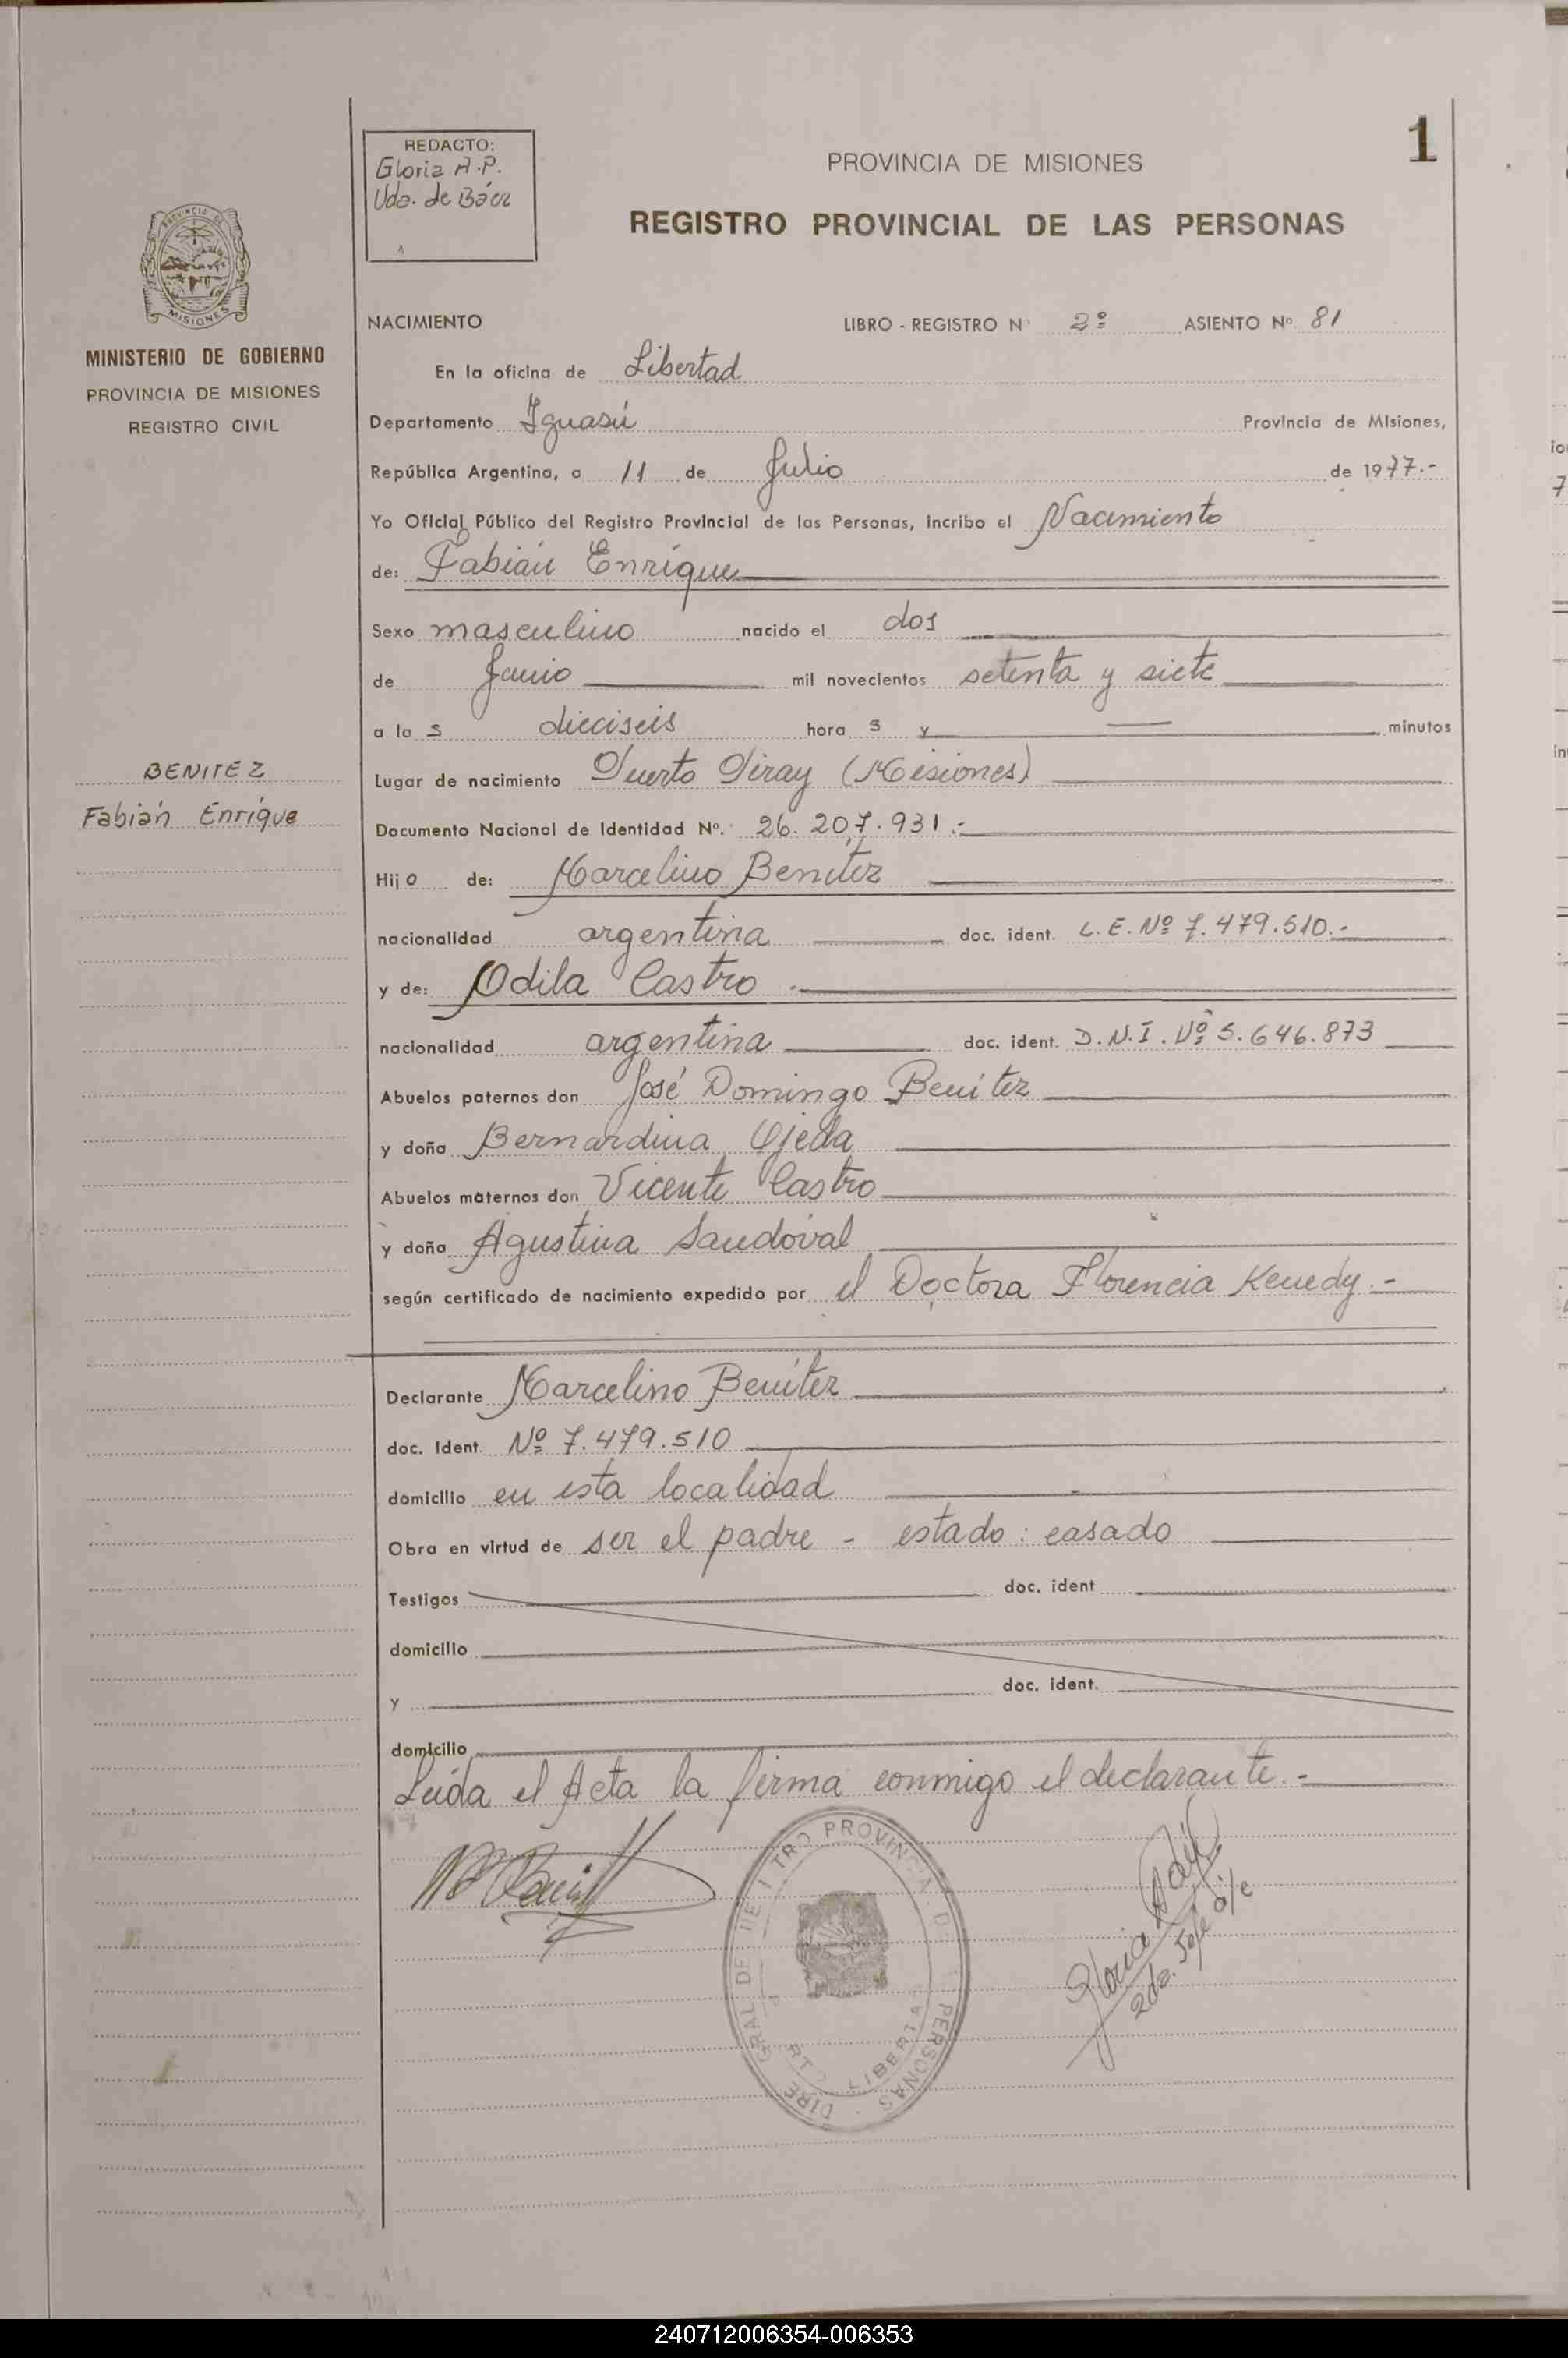 1
REDACTO:
Gloria A.P.
Vda. de Báez
PROVINCIA DE MISIONES
REGISTRO PROVINCIAL DE LAS PERSONAS
MISIONES
MINISTERIO DE GOBIERNO
PROVINCIA DE MISIONES
REGISTRO CIVIL
BENITEZ
Fabián Enrique
NACIMIENTO LIBRO - REGISTRO Nº 2º ASIENTO Nº 81
En la oficina de Libertad
Departamento Iguasú Provincia de Misiones,
República Argentina, a 11 de Julio de 1977.-
Yo Oficial Público del Registro Provincial de las Personas, incribo el Nacimiento
de: Fabián Enrique
Sexo masculino nacido el dos
de Junio mil novecientos setenta y siete
a la s dieciseis hora s y — minutos
Lugar de nacimiento Puerto Piray (Misiones)
Documento Nacional de Identidad Nº. 26.207.931.-
Hijo de: Marcelino Benítez
nacionalidad argentina doc. ident. L.E. Nº 7.479.510.-
y de: Odila Castro .-
nacionalidad argentina doc. ident. D.N.I. Nº 5.646.873
Abuelos paternos don José Domingo Benítez
y doña Bernardina Ojeda
Abuelos maternos don Vicente Castro
y doña Agustina Sandoval
según certificado de nacimiento expedido por el Doctora Florencia Kenedy.-
Declarante Marcelino Benítez
doc. Ident. Nº 7.479.510
domicilio en esta localidad
Obra en virtud de ser el padre - estado: casado
Testigos doc. ident
domicilio
y doc. ident.
domicilio
Leída el Acta la firma conmigo el declarante.-
PERSONAS
Gloria
240712006354-006353